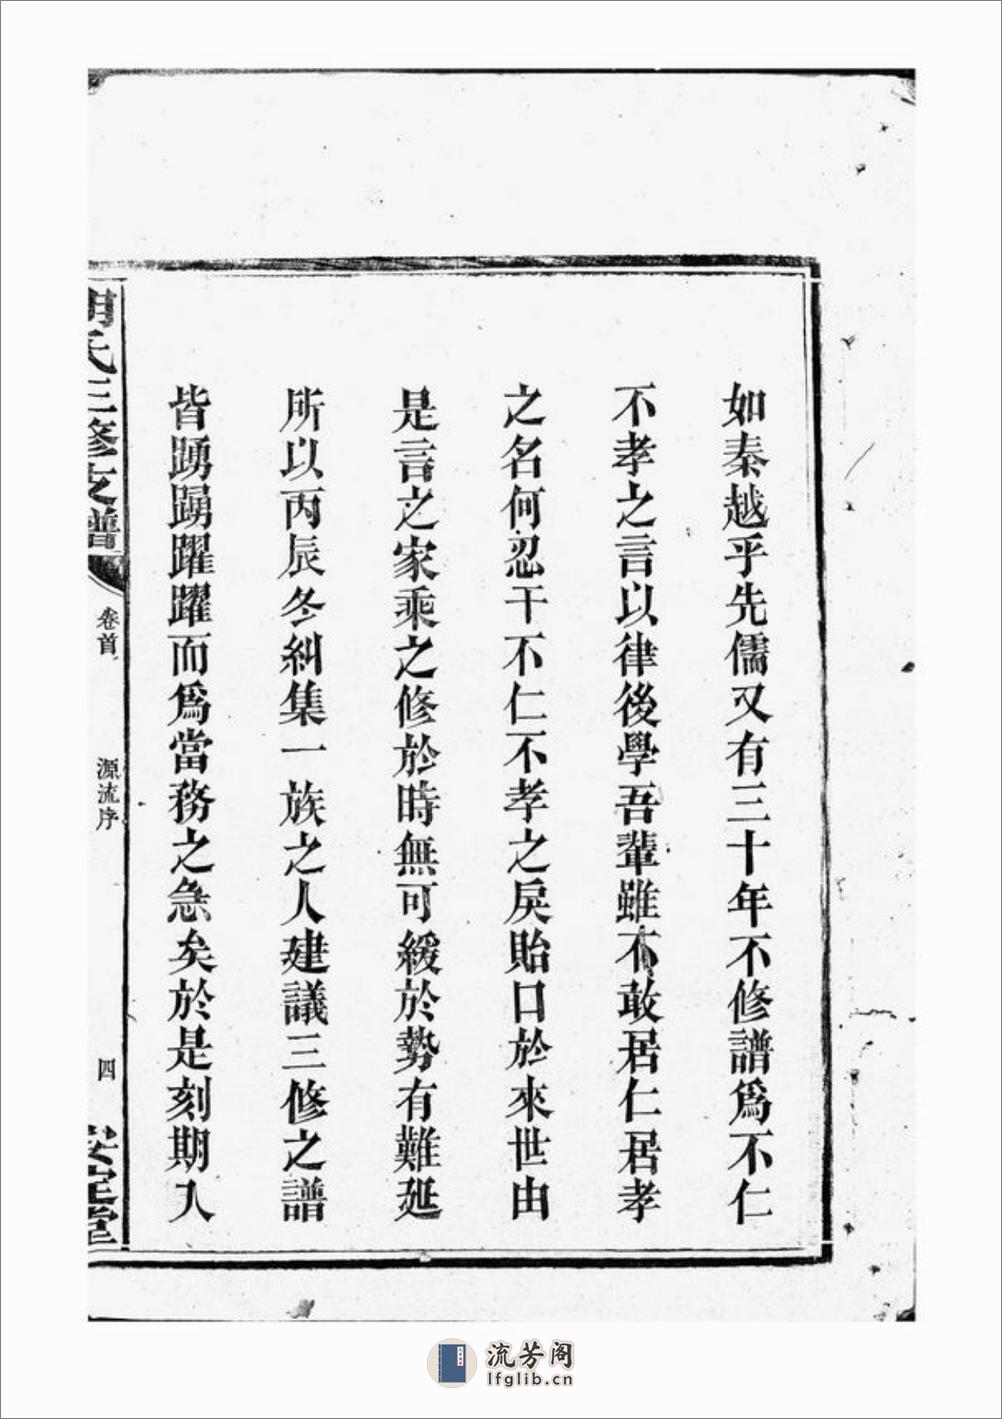 如秦越乎先儒又有三十年不修譜爲不仁
不孝之言以律後學吾輩雖不敢居仁居孝
之名何忍干不仁不孝之戾貽口於來世由
是言之家乘之修於時無可緩於勢有難延
所以丙辰冬糾集一族之人建議三修之譜
皆踴踴躍躍而爲當務之急矣於是刻期入
胡氏三修支譜
卷首
源流序
四
安定堂
流芳阁
lfglib.cn